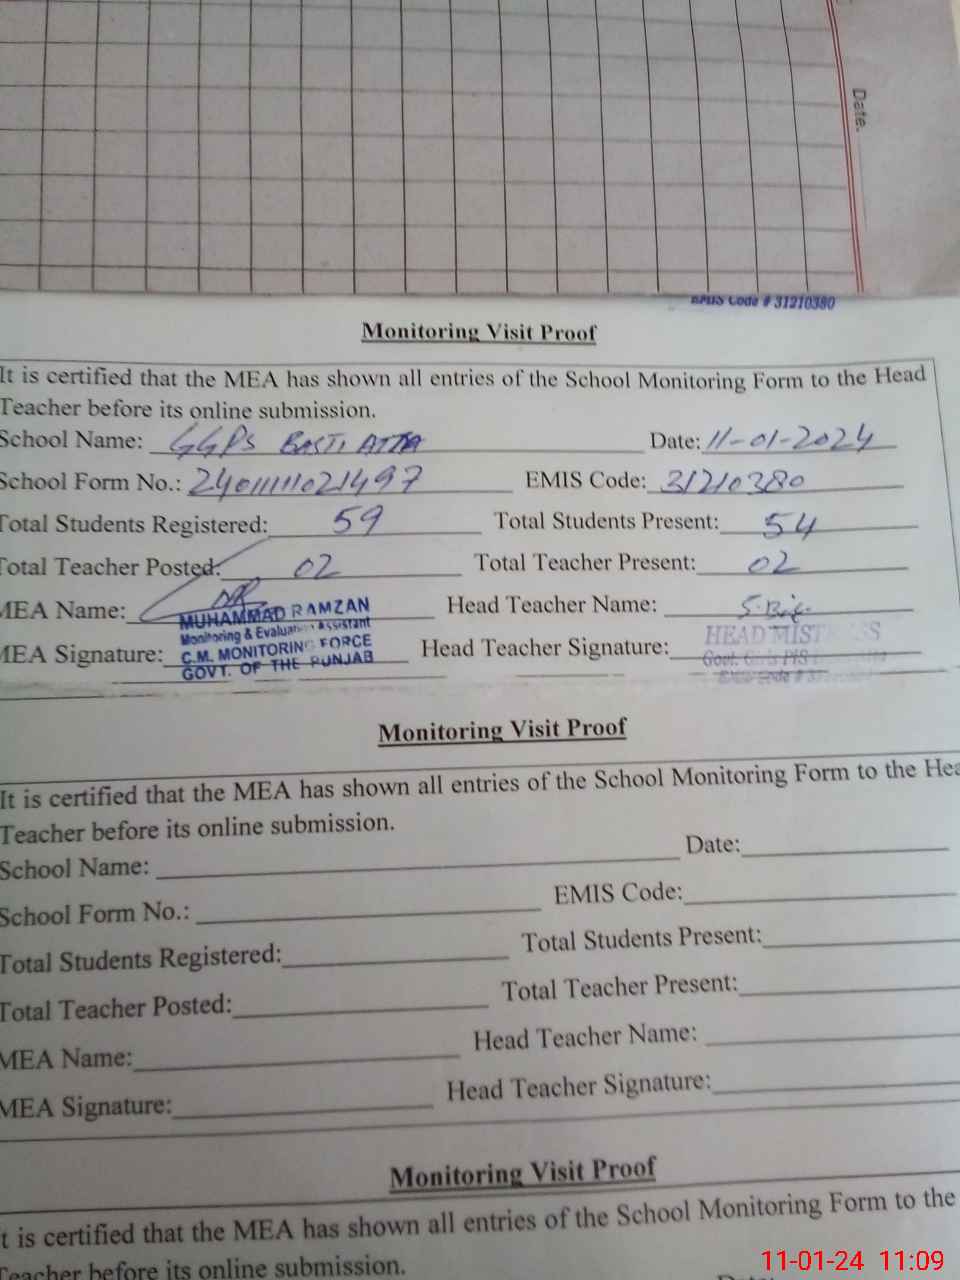 Date.
EMIS Code # 31210380
Monitoring Visit Proof
It is certified that the MEA has shown all entries of the School Monitoring Form to the Head
Teacher before its online submission.
School Name: GGPS BASTI ATTA Date: 11-01-2024
School Form No.: EMIS Code: 31210380
Total Students Registered: 59 Total Students Present: 54
Total Teacher Posted: 02 Total Teacher Present: 02
MEA Name: Head Teacher Name:
MUHAMMAD RAMZAN
Monitoring & Evaluation Assistant
C.M. MONITORING FORCE
GOVT. OF THE PUNJAB
MEA Signature: Head Teacher Signature:
HEADMISTRESS
Govt. Girls P/S
EMIS Code #
Monitoring Visit Proof
It is certified that the MEA has shown all entries of the School Monitoring Form to the Hea
Teacher before its online submission.
School Name: Date:
School Form No.: EMIS Code:
Total Students Registered: Total Students Present:
Total Teacher Posted: Total Teacher Present:
MEA Name: Head Teacher Name:
MEA Signature: Head Teacher Signature:
Monitoring Visit Proof
t is certified that the MEA has shown all entries of the School Monitoring Form to the
Teacher before its online submission.
11-01-24 11:09